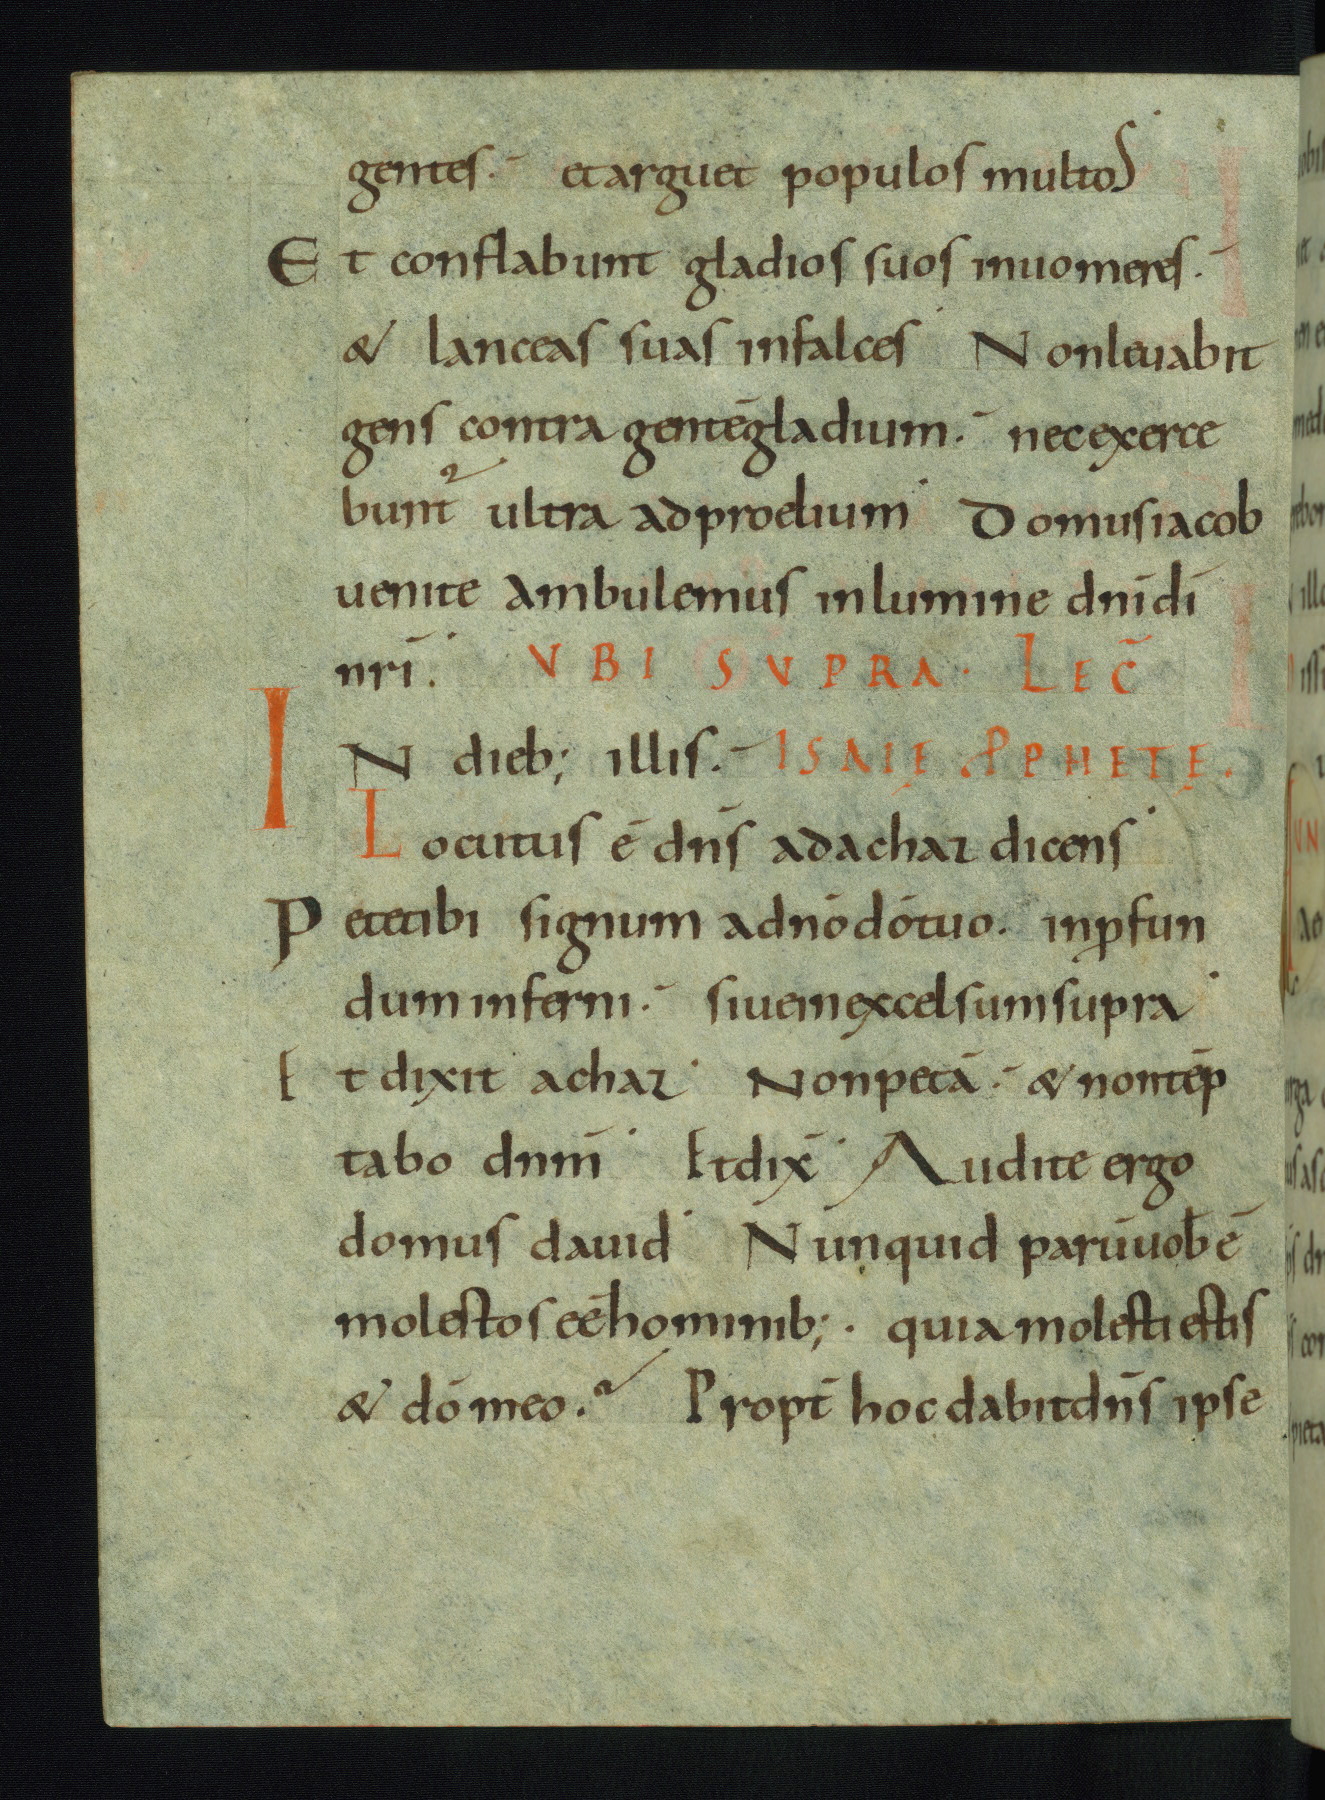 gentes. et arguet populos multos
Et conflabunt gladios suos inuomeres.
& lanceas suas infalces Nonleuabit
gens contra gentēgladium. necexerce
bunt᷑ ultra adproelium Domusiacob
uenite ambulemus inlumine dnīdī
nrī. VBI SVPRA. LEC̄
IN dieb; illis. ISAIĘ PPHETĘ.
Locutus ē dn̄s adachaz dicens
Petetibi signum adnōdōtuo. inꝓfun
duminferni. siueinexcelsumsupra
Et dixit achaz Nonpetā. & nontēp
tabo dnm̄ Etdix̄ Audite ergo
domus dauid Nunquid parūuob̄ē
molestos eēhominib;. quiamolestiestis
& dō meo. Propt̄ hocdabitdn̄s ipse